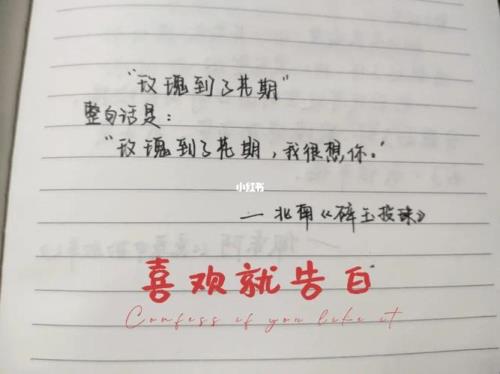 “玫瑰到了花期”
整句话是：
“玫瑰到了花期，我很想你。”
小红书
—北南《碎玉投珠》
喜欢就告白
Confess if you like it